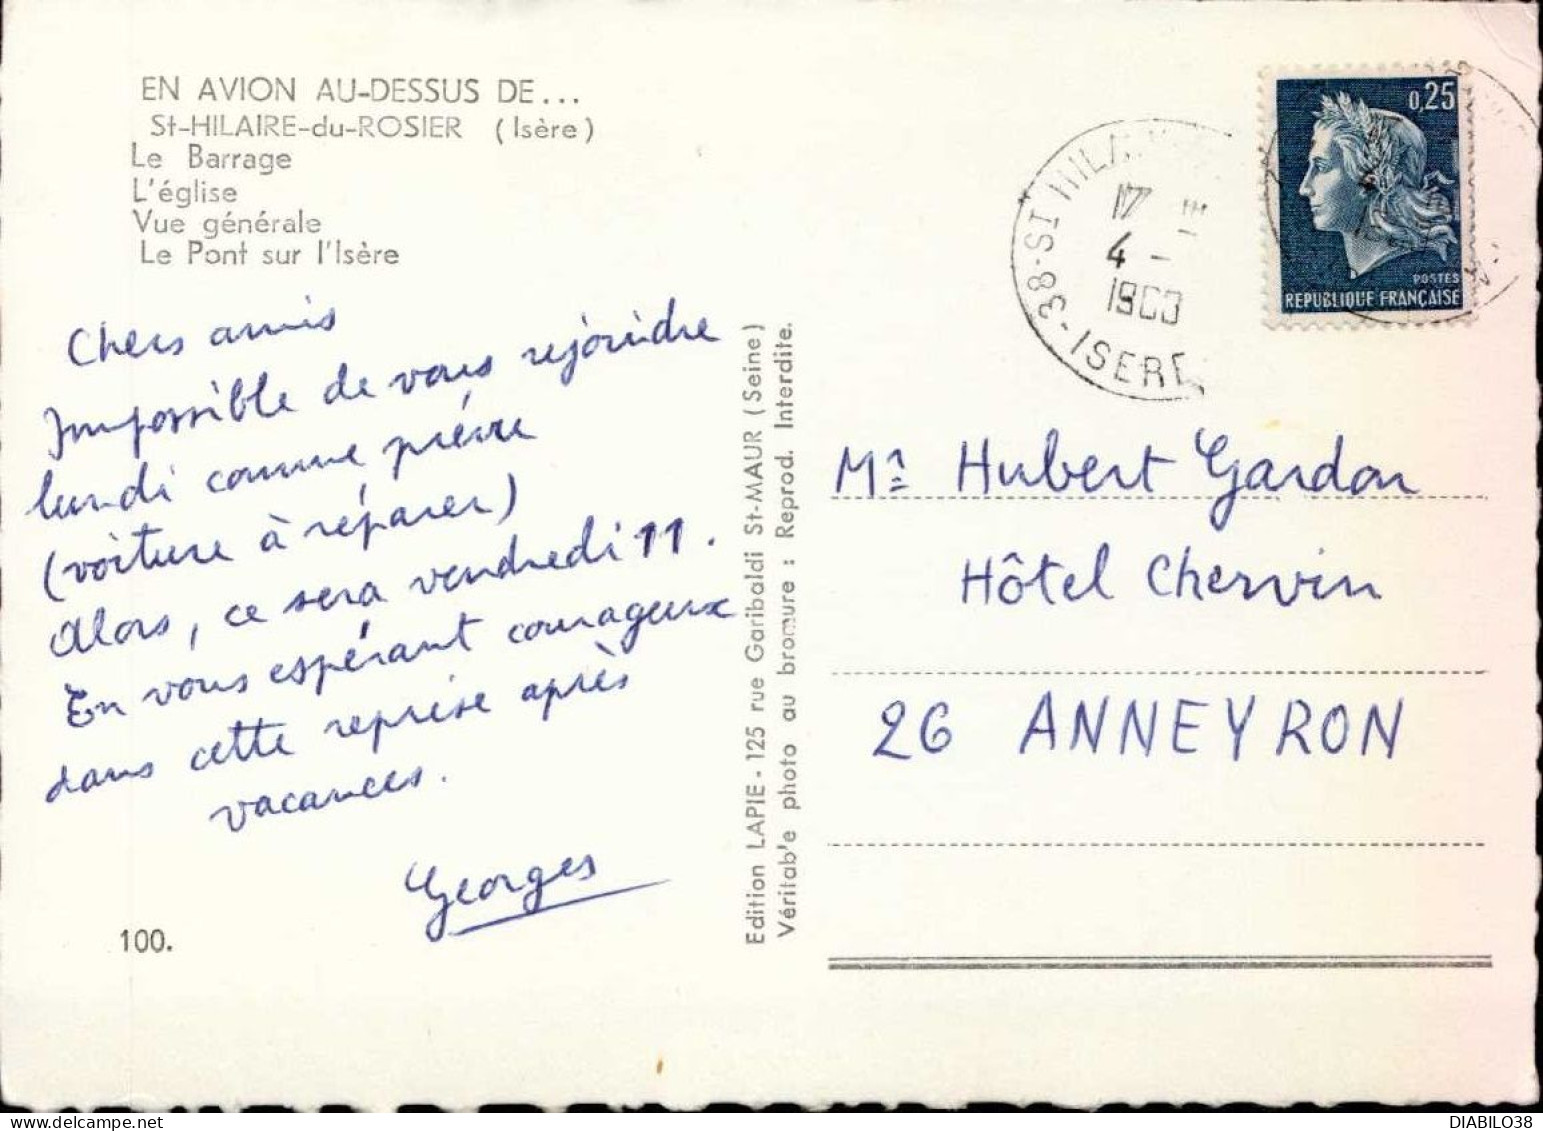 EN AVION AU-DESSUS DE...
St-HILAIRE-du-ROSIER (Isère)
Le Barrage
L'église
Vue générale
Le Pont sur l'Isère
Chers amis
Impossible de vous rejoindre
lundi comme prévu
(voiture à réparer)
Alors, ce sera vendredi 11.
En vous espérant courageux
dans cette reprise après
vacances.
Georges
100.
Edition LAPIE - 125 rue Garibaldi St-MAUR (Seine)
Véritab'e photo au bromure : Reprod. Interdite.
38-ST HILA
17
4 -
ISERE
0,25
POSTES
REPUBLIQUE FRANÇAISE
Mr Hubert Gardon
Hôtel Chervin
26 ANNEYRON
DIABILO38